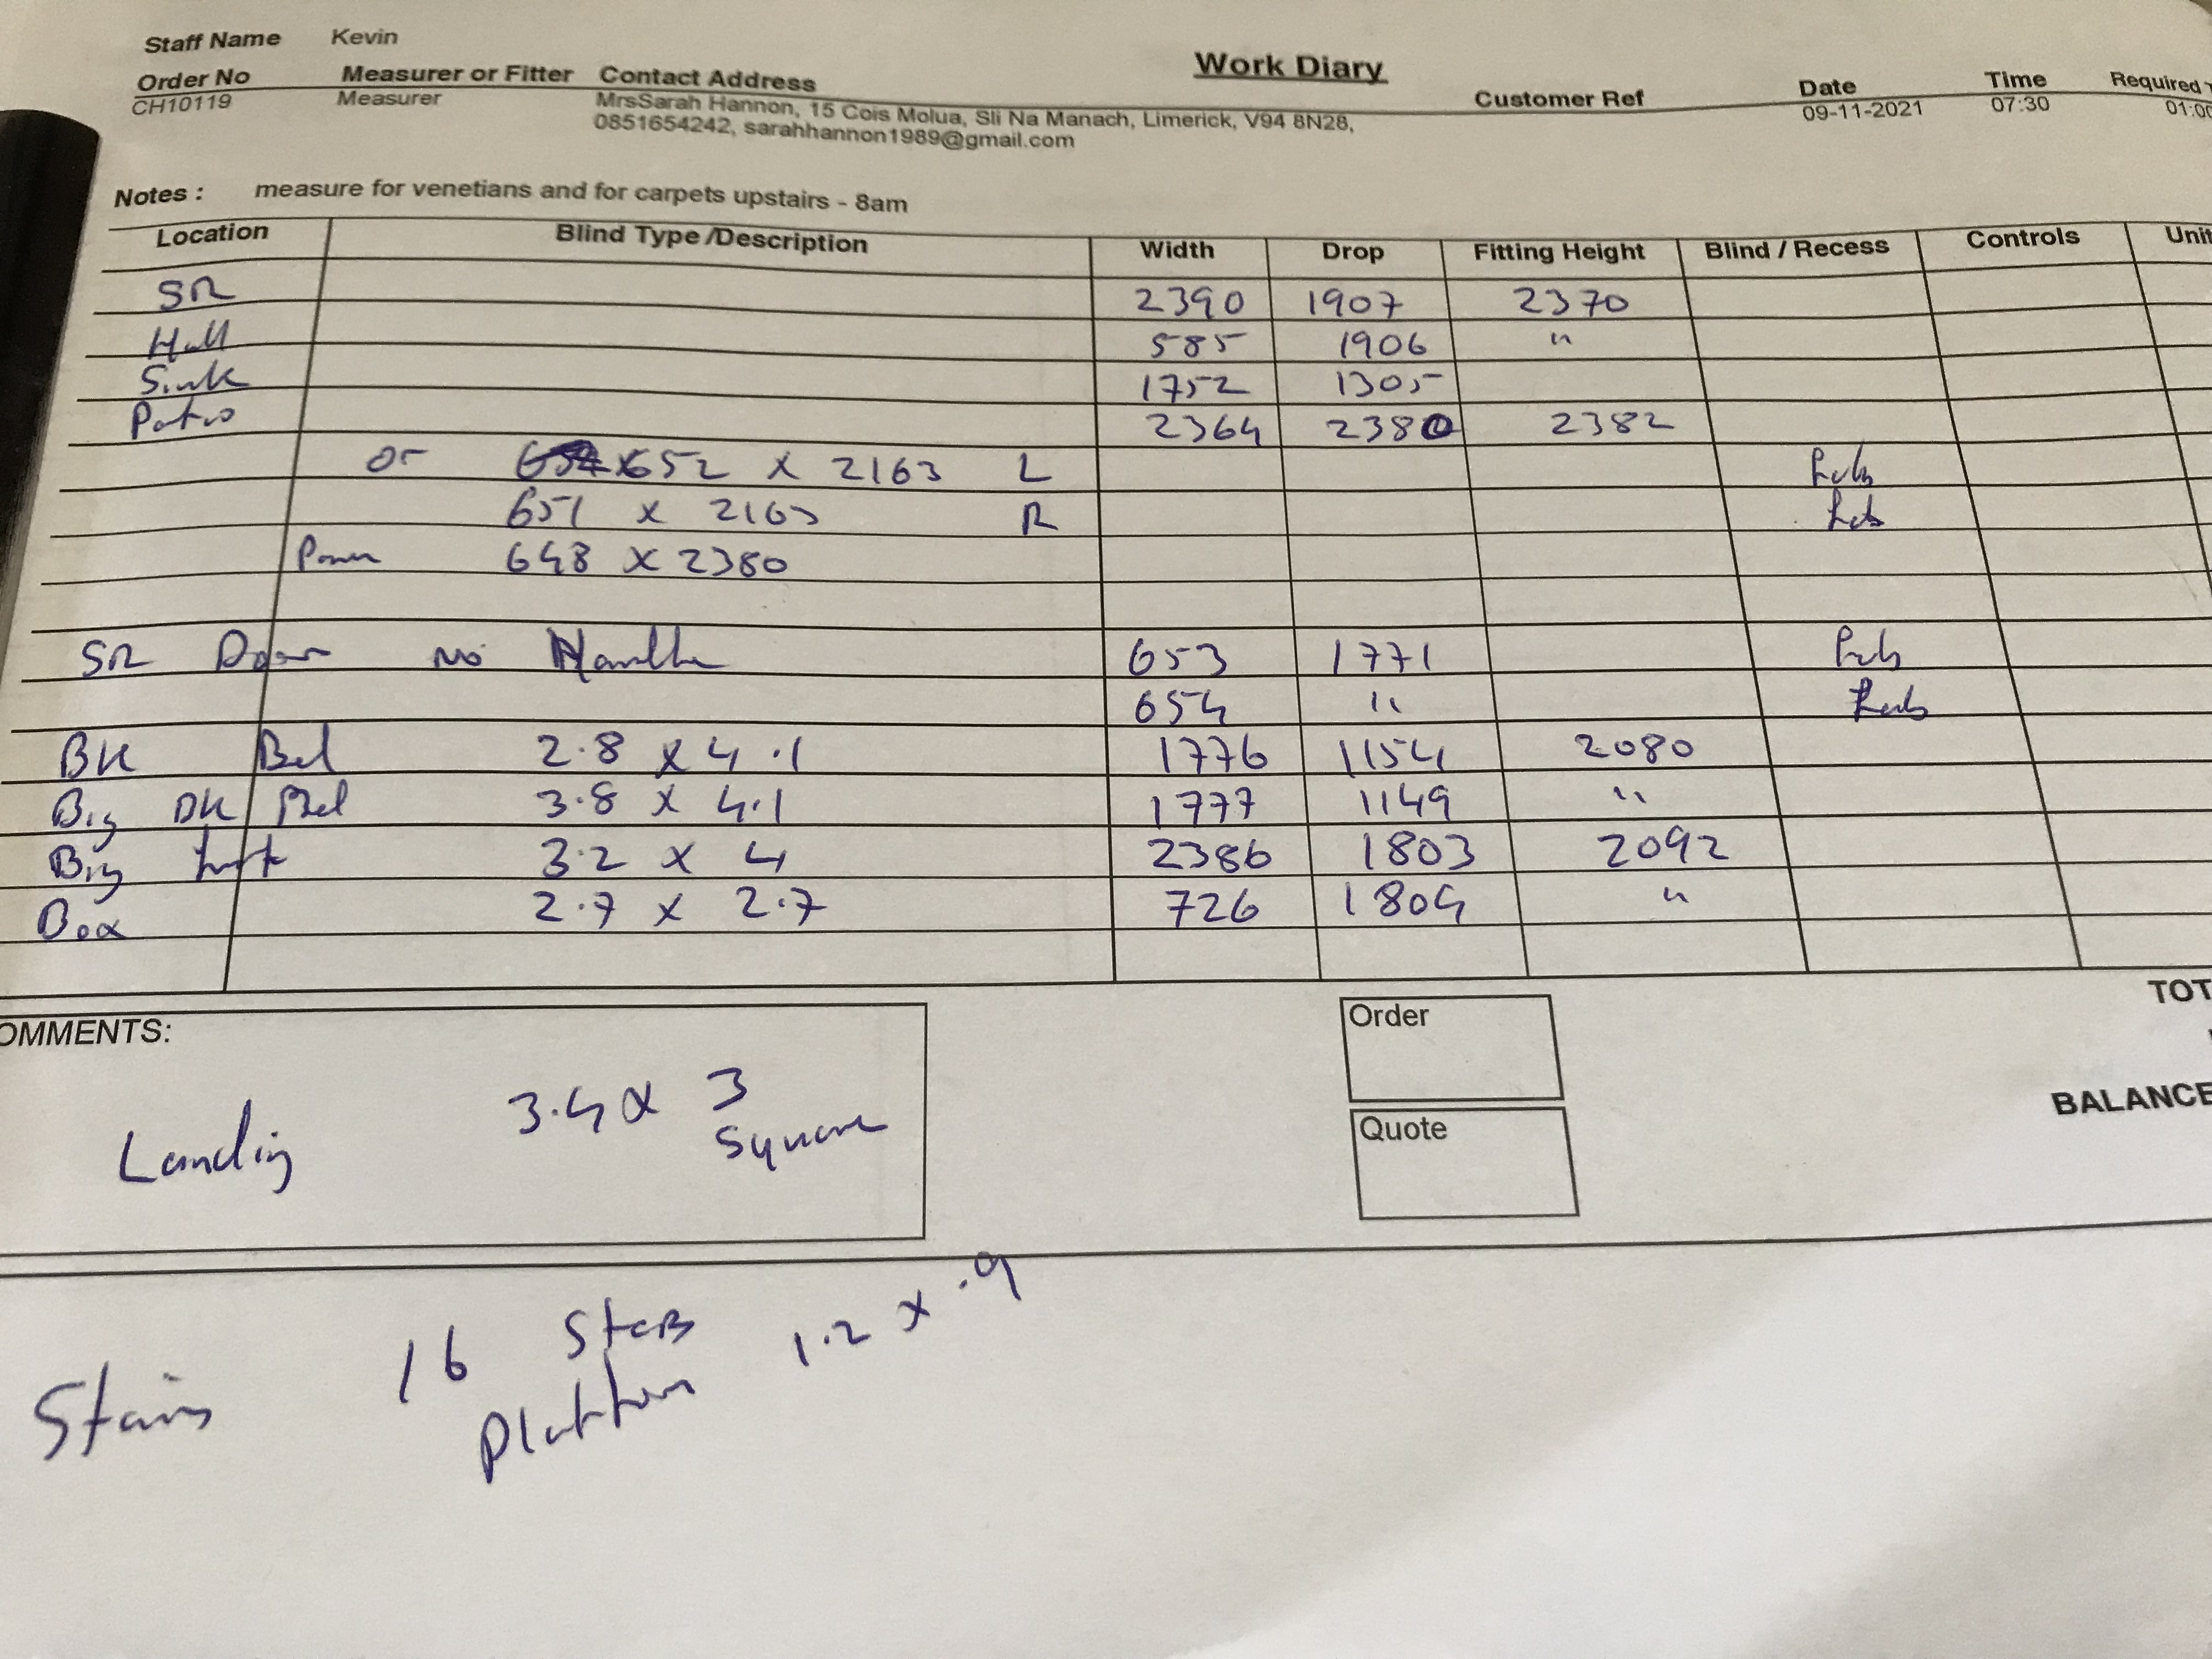 Staff Name Kevin
Work Diary
Order No Measurer or Fitter Contact Address Customer Ref Date Time Required
CH10119 Measurer MrsSarah Hannon, 15 Cois Molua, Sli Na Manach, Limerick, V94 8N28, 09-11-2021 07:30 01:00
0851654242, sarahhannon1989@gmail.com
Notes : measure for venetians and for carpets upstairs - 8am
Location Blind Type /Description Width Drop Fitting Height Blind / Recess Controls Unit
SR 2390 1907 2370
Hall 585 1906 "
Sink 1752 1305
Patio 2364 2380 2382
or 652 x 2163 L
651 x 2163 R
648 x 2380
SR Door No Handle 653 1771
654 "
BK Bed 2.8 x 4.1 1776 1154 2080
Big BK Bed 3.8 x 4.1 1777 1149 "
Big 3.2 x 4 2386 1803 2092
Box 2.7 x 2.7 726 1804 "
TOT
OMMENTS:
Order
BALANCE
Landing 3.4 x 3
Square
Quote
Stairs 16 Steps
Platform 1.2 x .9